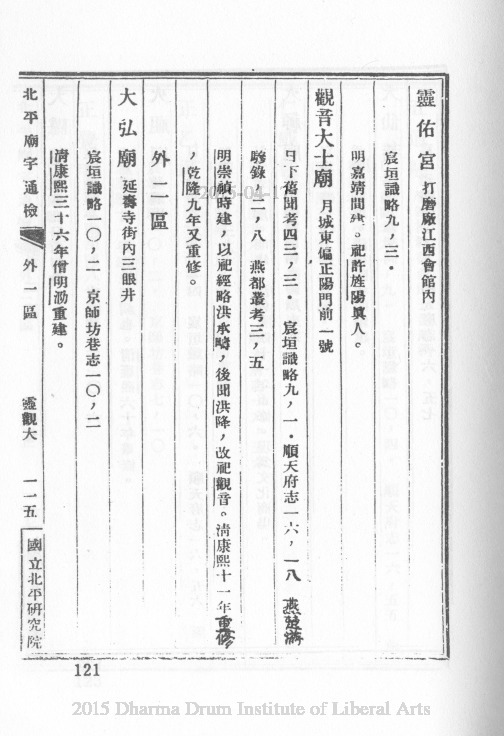 靈佑宮 打磨廠江西會館內
宸垣識略九,三。
明嘉靖間建。祀許旌陽眞人。
觀音大士廟 月城東偏正陽門前一號
日下舊聞考四三,三。 宸垣識略九,一。順天府志一六,一八 燕京游
驂錄,二,八 燕都叢考三,五
明崇禎時建,以祀經略洪承疇,後聞洪降,改祀觀音。清康熙十一年重修
,乾隆九年又重修。
外二區
大弘廟 延壽寺街內三眼井
宸垣識略一〇,二 京師坊巷志一〇,二
清康熙三十六年僧明泐重建。
北平廟宇通檢 外一區 靈觀大 一一五 國立北平研究院
121
2015 Dharma Drum Institute of Liberal Arts